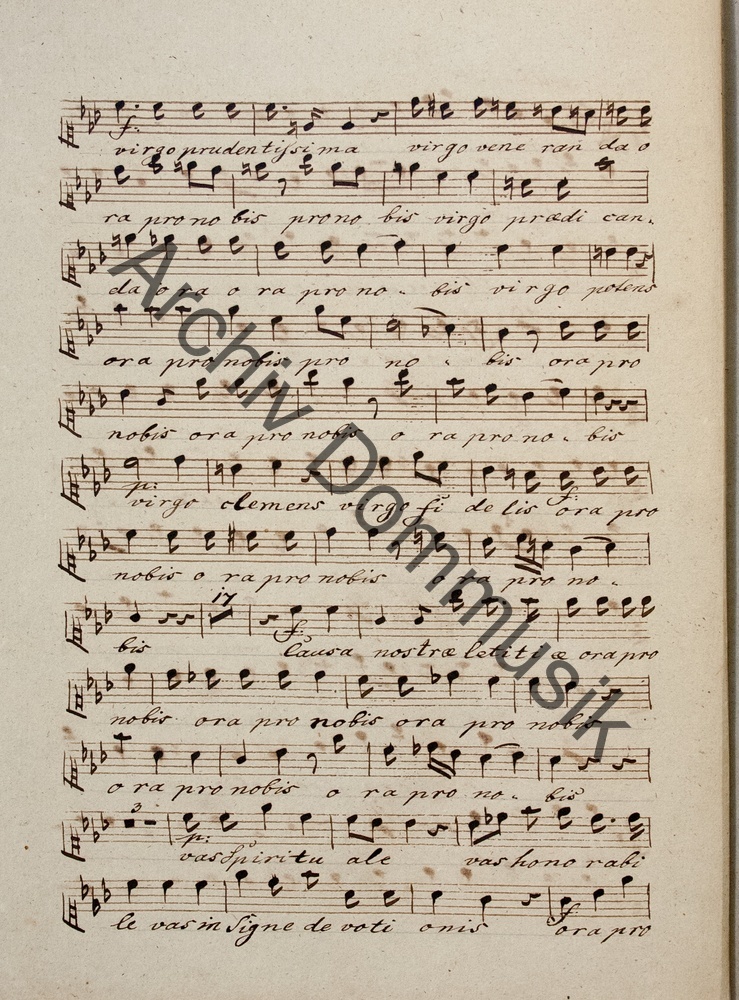 f.
virgo prudentissima virgo vene ran da o
ra pro no bis pro no bis virgo prædi can-
da o ra o ra pro no - bis virgo potens
ora pro nobis pro no - bis ora pro
nobis ora pro nobis o ra pro no - bis
p: f.
virgo clemens virgo fi delis ora pro
nobis o ra pro nobis o ra pro no -
17
f.
bis Causa nostræ letiti æ ora pro
nobis ora pro nobis ora pro nobis
o ra pro nobis o ra pro no - bis
3
p:
vas Spiritu ale vas hono rabi
f.
le vas in Signe de voti onis ora pro
Archiv Dommusik